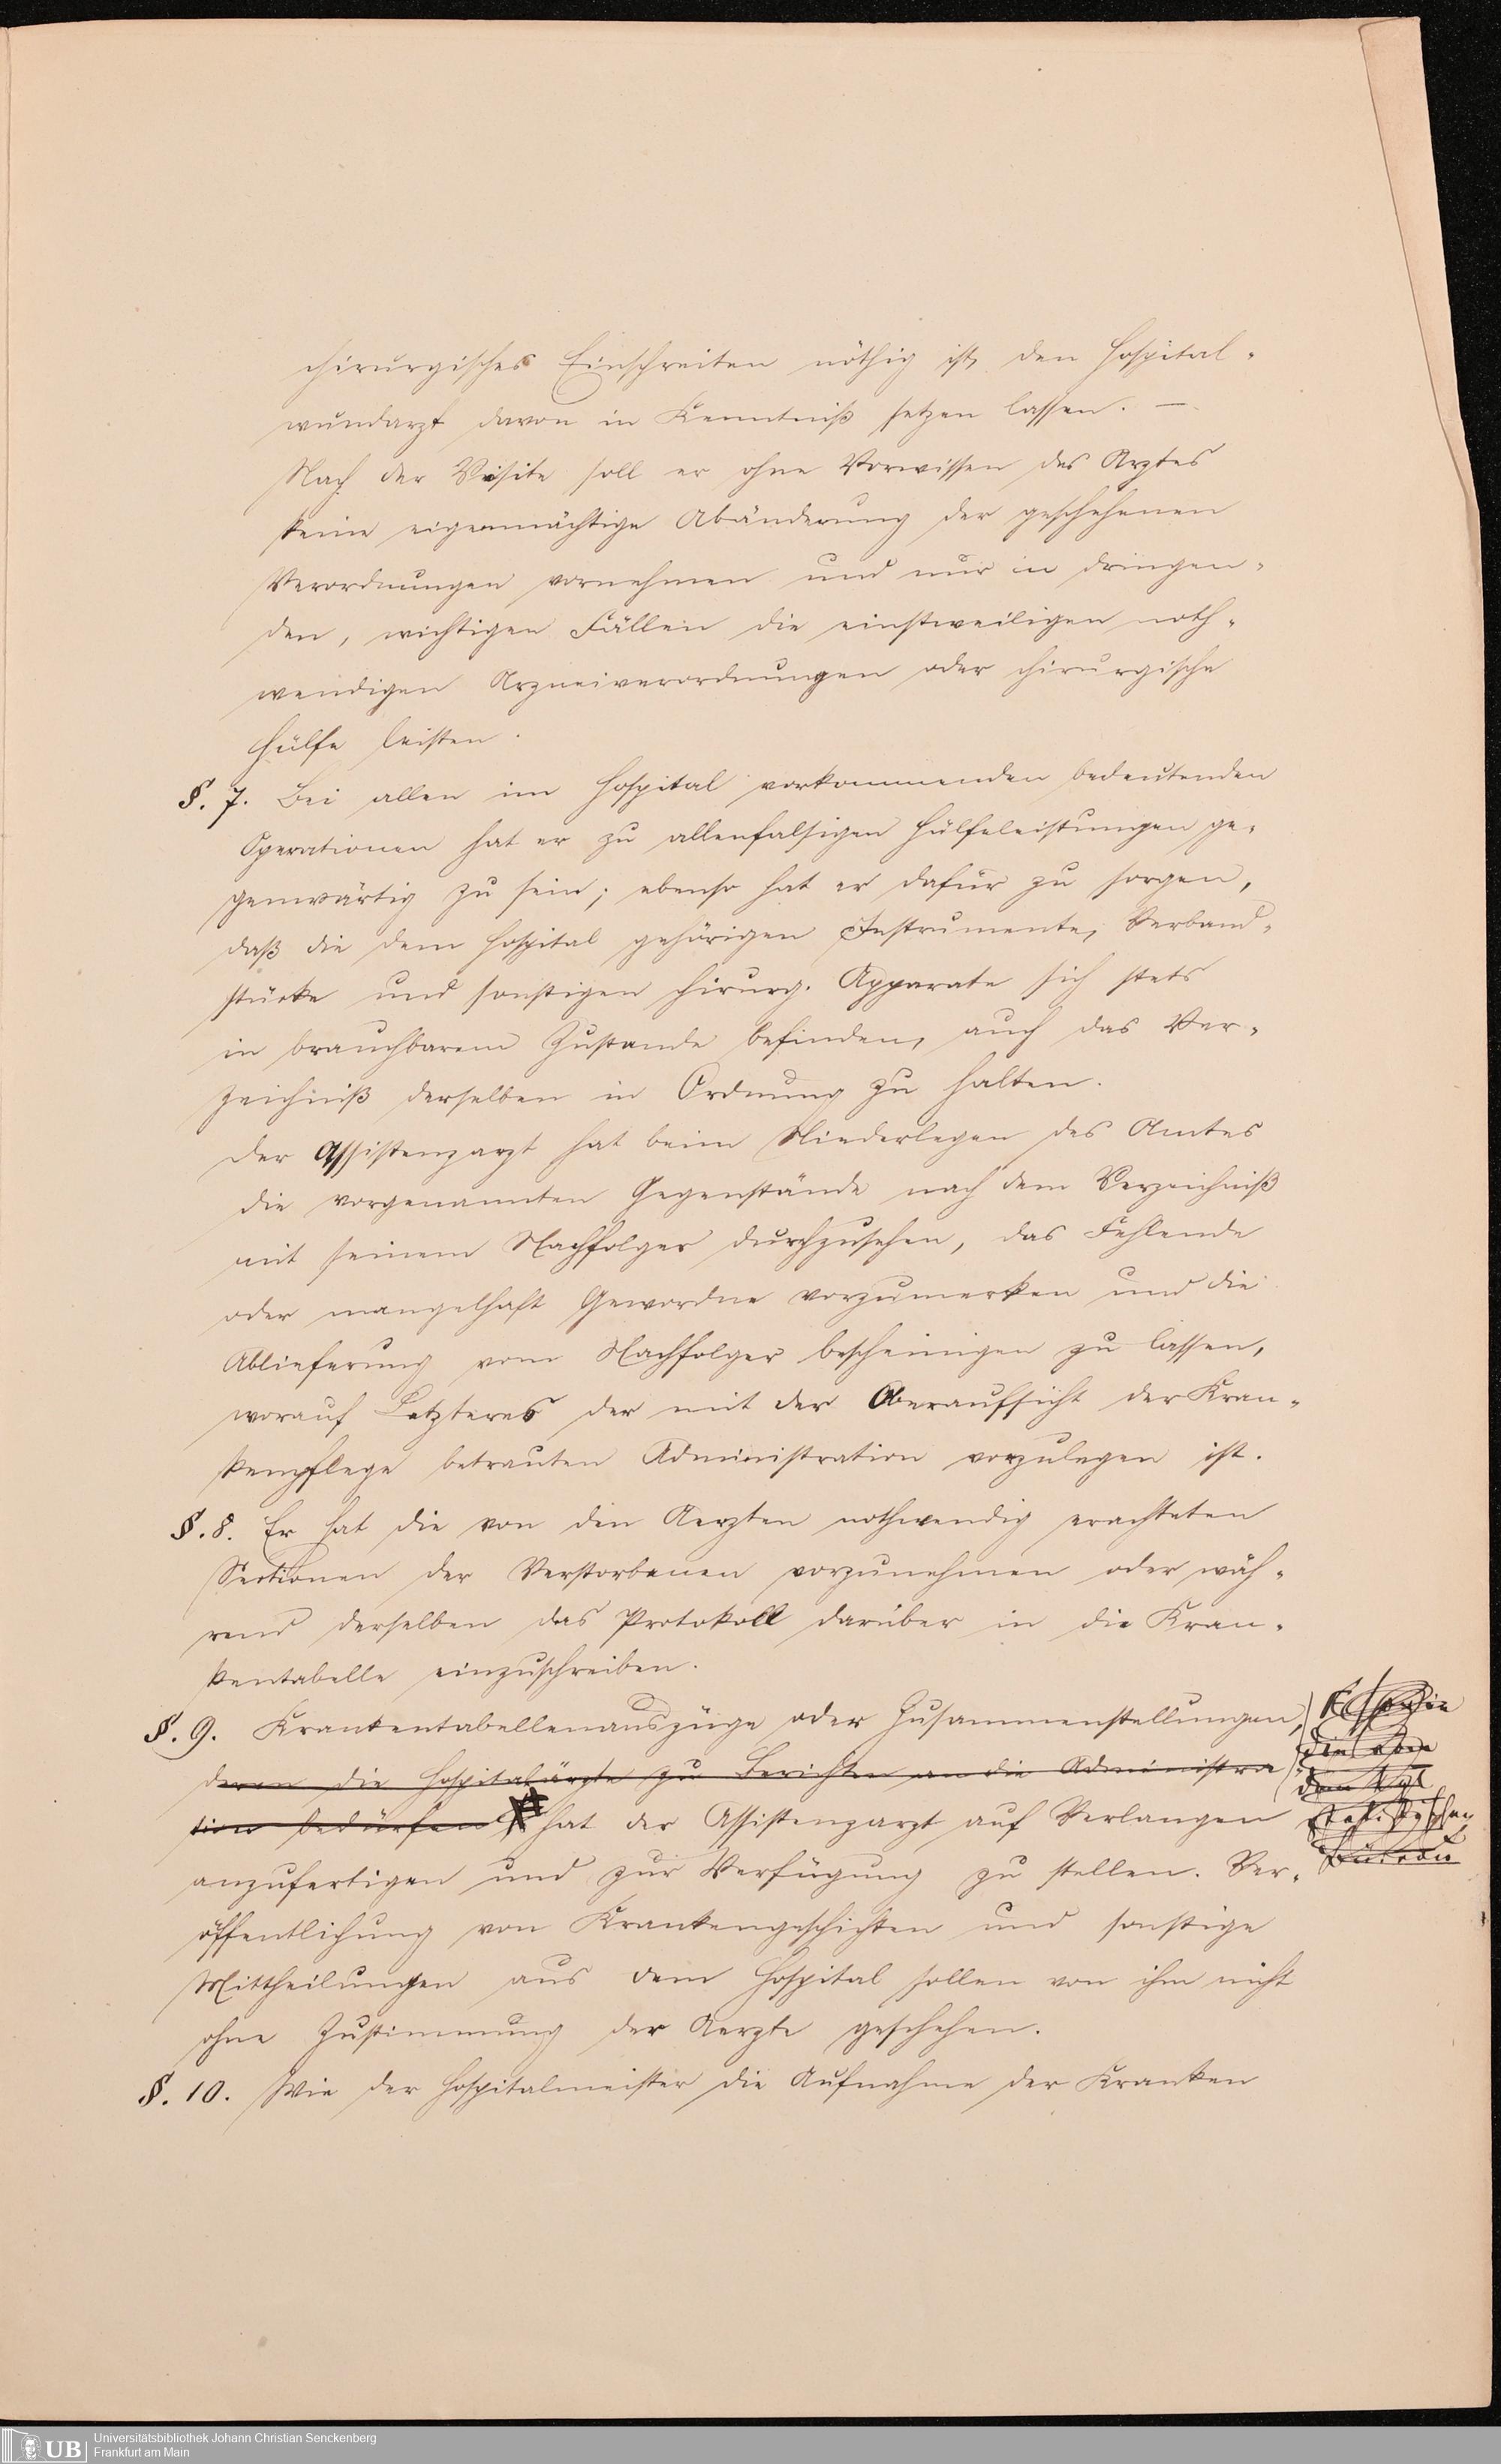 chirurgisches Einschreiten nöthig ist, den Hospital-
wundarzt davon in Kenntniß setzen lassen. —
Nach der Visite soll er ohne Vorwissen des Arztes
keine eigenmächtige Abänderung der geschehenen
Verordnungen vornehmen und nur in dringen-
den, wichtigen Fällen die einstweiligen noth-
wendigen Arzneiverordnungen oder chirurgische
Hülfe leisten.
§. 7. Bei allen im Hospital vorkommenden bedeutenden
Operationen hat er zu allenfalsigen Hülfeleistungen ge-
genwärtig zu sein; ebenso hat er dafür zu sorgen,
daß die dem Hospital gehörigen Instrumente, Verband-
stücke und sonstigen chirurg. Apparate sich stets
in brauchbarem Zustande befinden, auch das Ver-
zeichniß derselben in Ordnung zu halten.
Der Assistenzarzt hat beim Niederlegen des Amtes
die vorgenannten Gegenstände nach dem Verzeichniß
mit seinem Nachfolger durchzusehen, das Fehlende
oder mangelhaft Gewordne vorzumerken und die
Ablieferung vom Nachfolger bescheinigen zu lassen,
worauf Letzteres der mit der Oberaufsicht der Kran-
kenpflege betrauten Administration vorzulegen ist.
§. 8. Er hat die von den Aerzten nothwendig erachteten
Sectionen der Verstorbenen vorzunehmen oder wäh-
rend derselben das Protokoll darüber in die Kran-
kentabelle einzuschreiben.
§. 9. Krankentabellenauszüge oder Zusammenstellungen,
deren die Hospitalärzte zu Berichten an die Administra
tion bedürfen hat der Assistenzarzt auf Verlangen
anzufertigen und zur Verfügung zu stellen. Ver-
öffentlichung von Krankengeschichten und sonstige
Mittheilungen aus dem Hospital sollen von ihm nicht
ohne Zustimmung der Aerzte geschehen.
§. 10. Wie der Hospitalmeister die Aufnahme der Kranken
statistischen
Büreau
UB
Universitätsbibliothek Johann Christian Senckenberg
Frankfurt am Main